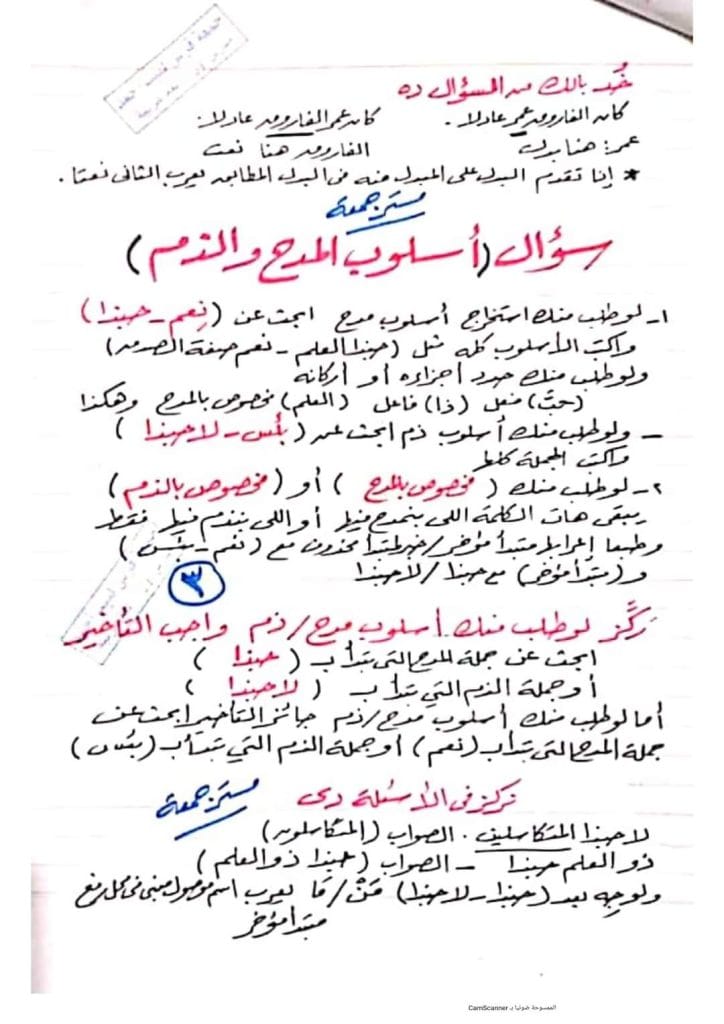 خُد بالك من السؤال ده
كان الفاروق عمر عادلا. كان عمر الفاروق عادلا.
عمر: هنا بدل الفاروق هنا نعت
* إذا تقدم البدل على المبدل منه فى البدل المطابق يعرب الثانى نعتا.
مستر جمعة
سؤال (أسلوب المدح والذم)
١- لو طلب منك استخراج أسلوب مدح ابحث عن (نِعم - حبذا)
واكتب الأسلوب كله مثل (حبذا العلم - نعم صفة الصدق)
ولو طلب منك حدد أجزاءه أو أركانه
(حبَّ) فعل (ذا) فاعل (العلم) مخصوص بالمدح وهكذا
- ولو طلب منك أسلوب ذم ابحث عن (بئس - لا حبذا)
واكتب الجملة كلها
٢- لو طلب منك (مخصوص بالمدح) أو (مخصوص بالذم)
يبقى هات الكلمة اللى بنمدح فيها أو اللى بنذم فيها فقط
وطبعا إعرابها مبتدأ مؤخر/خبر لمبتدأ محذوف مع (نعم - بئس)
و(مبتدأ مؤخر) مع حبذا / لا حبذا
٣
ركَّز لو طلب منك أسلوب مدح/ذم واجب التأخير
ابحث عن جملة المدح التى تبدأ بـ (حبذا)
أو جملة الذم التي تبدأ بـ (لا حبذا)
أما لو طلب منك أسلوب مدح/ذم جائز التأخير ابحث عن
جملة المدح التى تبدأ بـ (نعم) أو جملة الذم التى تبدأ بـ (بئس)
نركز فى الأسئلة دى مستر جمعة
لا حبذا المتكاسلين . الصواب (المتكاسلون)
ذو العلم حبذا - الصواب (حبذا ذو العلم)
ولو جه بعد (حبذا - لا حبذا) مَنْ/مَا يعرب اسم موصول مبنى فى محل رفع
مبتدأ مؤخر
الممسوحة ضوئيا بـ CamScanner